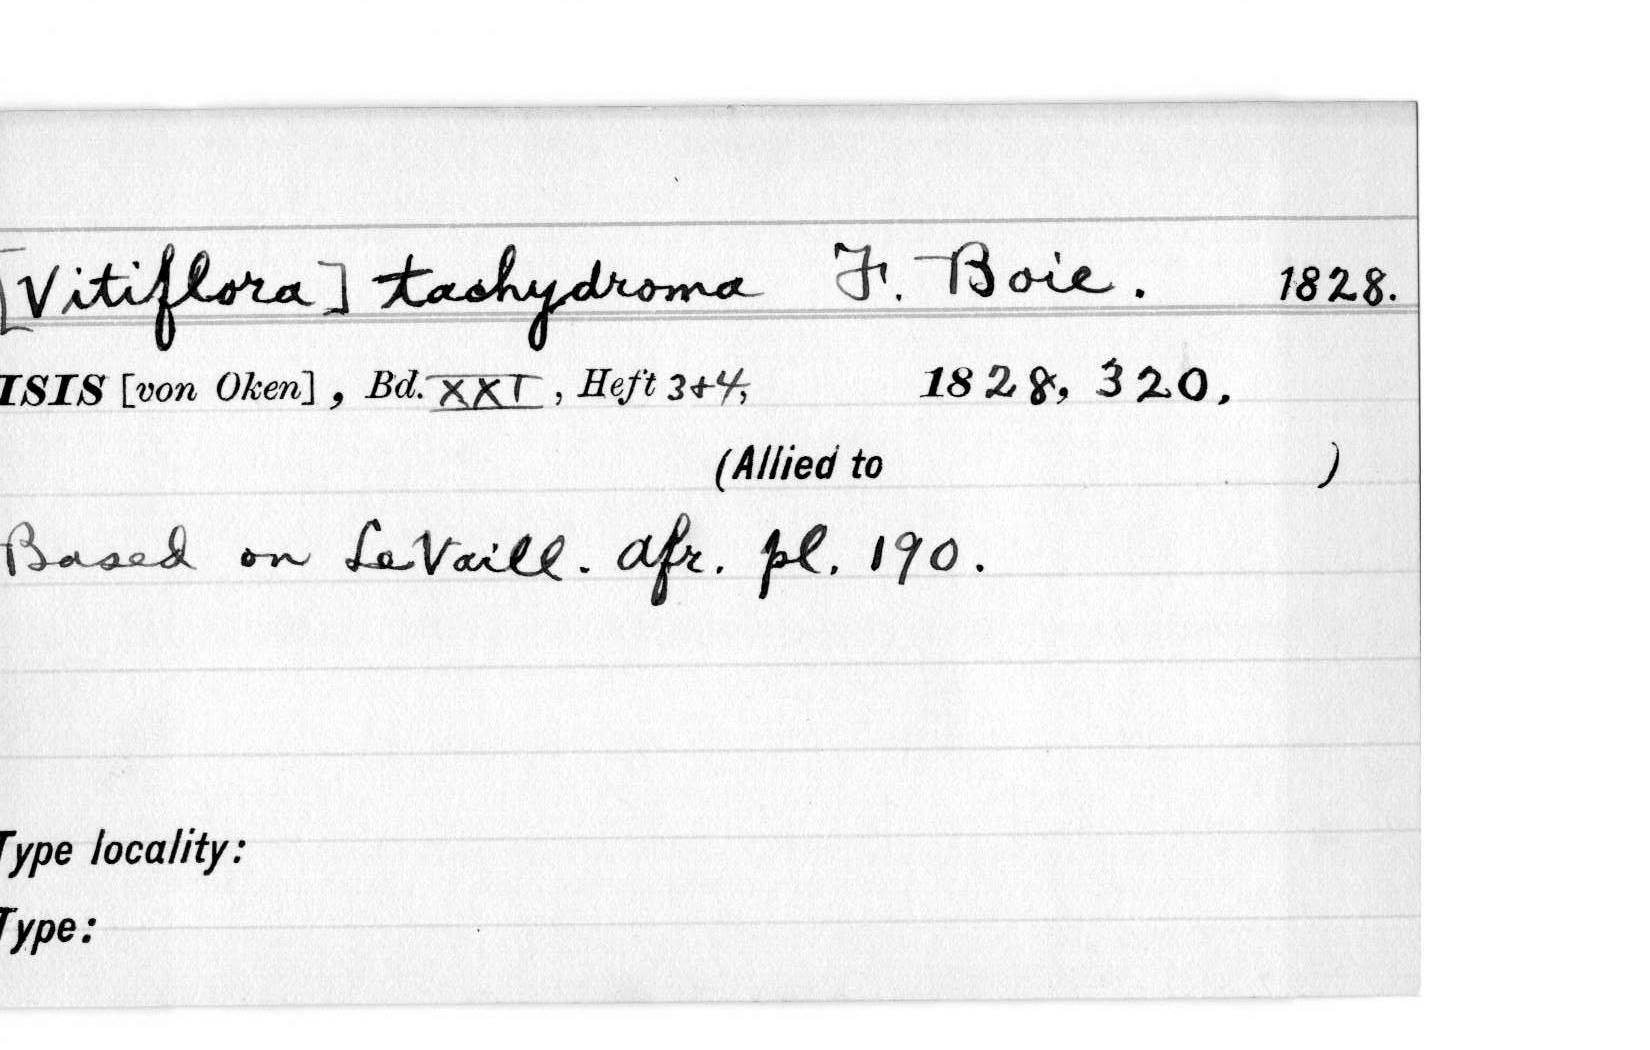 [Vitiflora] tachydroma F. Boie. 1828.
ISIS [von Oken], Bd. XXI, Heft 3+4, 1828, 320.
(Allied to )
Based on LeVaill. Afr. pl. 190.
Type locality:
Type: